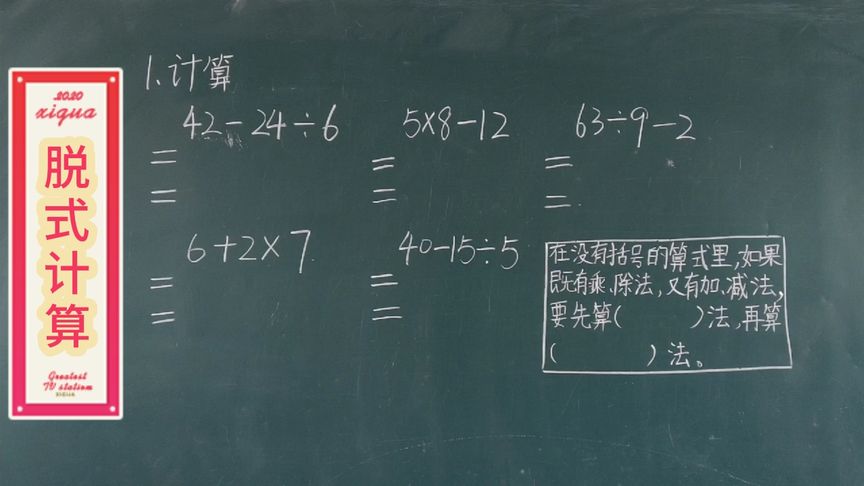 2020
xigua
脱式计算
Greatest
TV station
1.计算
42-24÷6
5×8-12
63÷9-2
=
=
=
=
=
=
6+2×7
40-15÷5
=
=
=
=
在没有括号的算式里,如果
既有乘、除法,又有加、减法,
要先算( )法,再算
( )法。